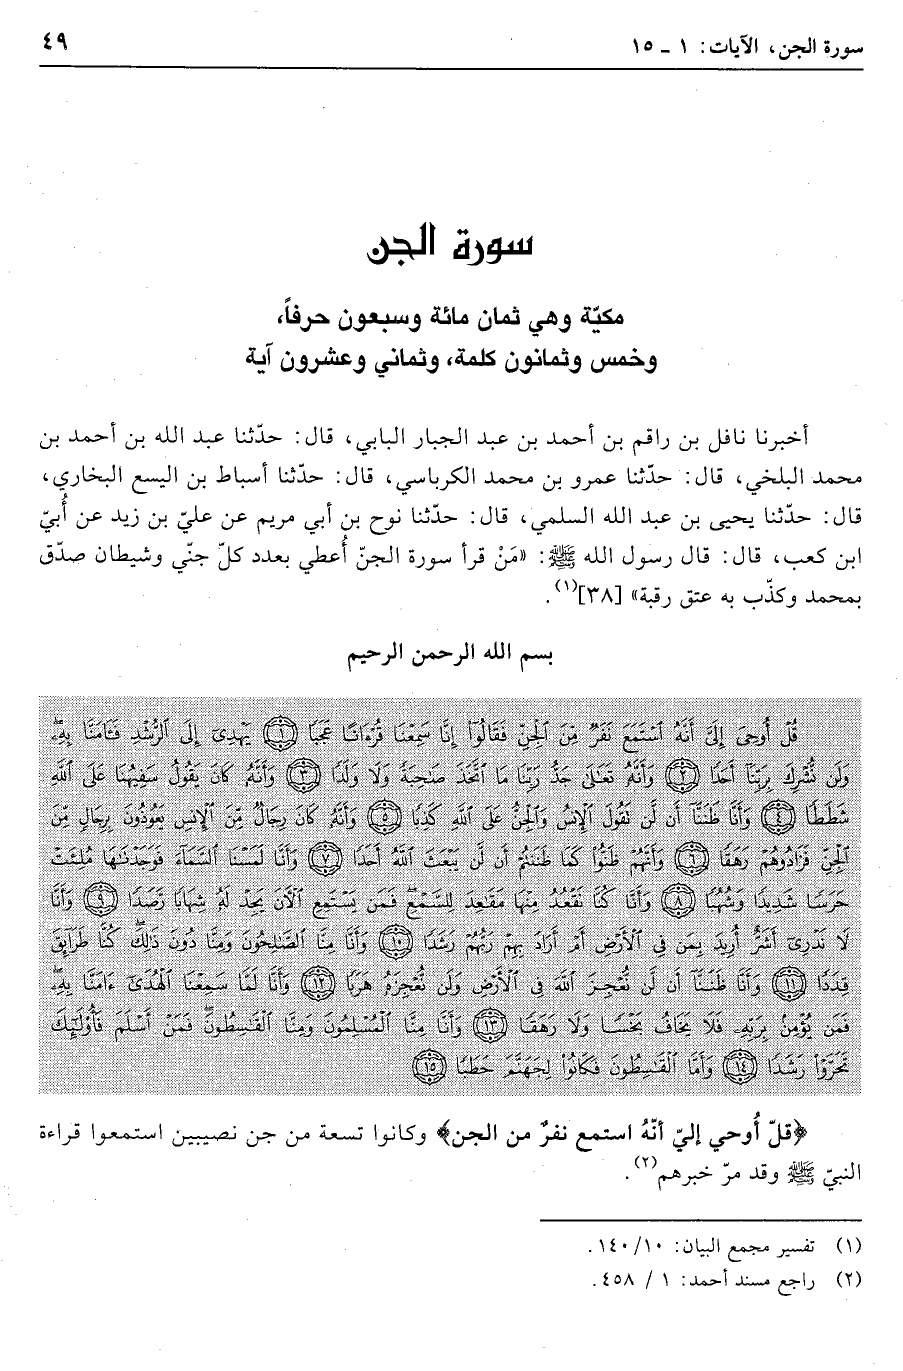 سورة الجن، الآيات: ١ - ١٥
٤٩
سورة الجن
مكيّة وهي ثمان مائة وسبعون حرفاً،
وخمس وثمانون كلمة، وثماني وعشرون آية
أخبرنا نافل بن راقم بن أحمد بن عبد الجبار البابي، قال: حدّثنا عبد الله بن أحمد بن
محمد البلخي، قال: حدّثنا عمرو بن محمد الكرباسي، قال: حدّثنا أسباط بن اليسع البخاري،
قال: حدّثنا يحيى بن عبد الله السلمي، قال: حدّثنا نوح بن أبي مريم عن عليّ بن زيد عن أُبيّ
ابن كعب، قال: قال رسول الله ﷺ: «مَنْ قرأ سورة الجنّ أُعطي بعدد كلّ جنّي وشيطان صدّق
بمحمد وكذّب به عتق رقبة» [٣٨](١).
بسم الله الرحمن الرحيم
قُلْ أُوحِىَ إِلَىَّ أَنَّهُ ٱسْتَمَعَ نَفَرٌ مِّنَ ٱلْجِنِّ فَقَالُوٓا۟ إِنَّا سَمِعْنَا قُرْءَانًا عَجَبًا ﴿١﴾ يَهْدِىٓ إِلَى ٱلرُّشْدِ فَـَٔامَنَّا بِهِۦۖ
وَلَن نُّشْرِكَ بِرَبِّنَآ أَحَدًا ﴿٢﴾ وَأَنَّهُۥ تَعَـٰلَىٰ جَدُّ رَبِّنَا مَا ٱتَّخَذَ صَـٰحِبَةً وَلَا وَلَدًا ﴿٣﴾ وَأَنَّهُۥ كَانَ يَقُولُ سَفِيهُنَا عَلَى ٱللَّهِ
شَطَطًا ﴿٤﴾ وَأَنَّا ظَنَنَّآ أَن لَّن نَقُولَ ٱلْإِنسُ وَٱلْجِنُّ عَلَى ٱللَّهِ كَذِبًا ﴿٥﴾ وَأَنَّهُۥ كَانَ رِجَالٌ مِّنَ ٱلْإِنسِ يَعُوذُونَ بِرِجَالٍ مِّنَ
ٱلْجِنِّ فَزَادُوهُمْ رَهَقًا ﴿٦﴾ وَأَنَّهُمْ ظَنُّوا۟ كَمَا ظَنَنتُمْ أَن لَّن يَبْعَثَ ٱللَّهُ أَحَدًا ﴿٧﴾ وَأَنَّا لَمَسْنَا ٱلسَّمَآءَ فَوَجَدْنَـٰهَا مُلِئَتْ
حَرَسًا شَدِيدًا وَشُهُبًا ﴿٨﴾ وَأَنَّا كُنَّا نَقْعُدُ مِنْهَا مَقَـٰعِدَ لِلسَّمْعِۖ فَمَن يَسْتَمِعِ ٱلْـَٔانَ يَجِدْ لَهُۥ شِهَابًا رَّصَدًا ﴿٩﴾ وَأَنَّا
لَا نَدْرِىٓ أَشَرٌّ أُرِيدَ بِمَن فِى ٱلْأَرْضِ أَمْ أَرَادَ بِهِمْ رَبُّهُمْ رَشَدًا ﴿١٠﴾ وَأَنَّا مِنَّا ٱلصَّـٰلِحُونَ وَمِنَّا دُونَ ذَٰلِكَۖ كُنَّا طَرَآئِقَ
قِدَدًا ﴿١١﴾ وَأَنَّا ظَنَنَّآ أَن لَّن نُّعْجِزَ ٱللَّهَ فِى ٱلْأَرْضِ وَلَن نُّعْجِزَهُۥ هَرَبًا ﴿١٢﴾ وَأَنَّا لَمَّا سَمِعْنَا ٱلْهُدَىٰٓ ءَامَنَّا بِهِۦۖ
فَمَن يُؤْمِنۢ بِرَبِّهِۦ فَلَا يَخَافُ بَخْسًا وَلَا رَهَقًا ﴿١٣﴾ وَأَنَّا مِنَّا ٱلْمُسْلِمُونَ وَمِنَّا ٱلْقَـٰسِطُونَۖ فَمَنْ أَسْلَمَ فَأُو۟لَـٰٓئِكَ
تَحَرَّوْا۟ رَشَدًا ﴿١٤﴾ وَأَمَّا ٱلْقَـٰسِطُونَ فَكَانُوا۟ لِجَهَنَّمَ حَطَبًا ﴿١٥﴾
﴿قلّ أُوحي إليّ أنّهُ استمع نفرٌ من الجن﴾ وكانوا تسعة من جن نصيبين استمعوا قراءة
النبيّ ﷺ وقد مرّ خبرهم(٢).
(١) تفسير مجمع البيان: ١٠/ ١٤٠.
(٢) راجع مسند أحمد: ١ / ٤٥٨.